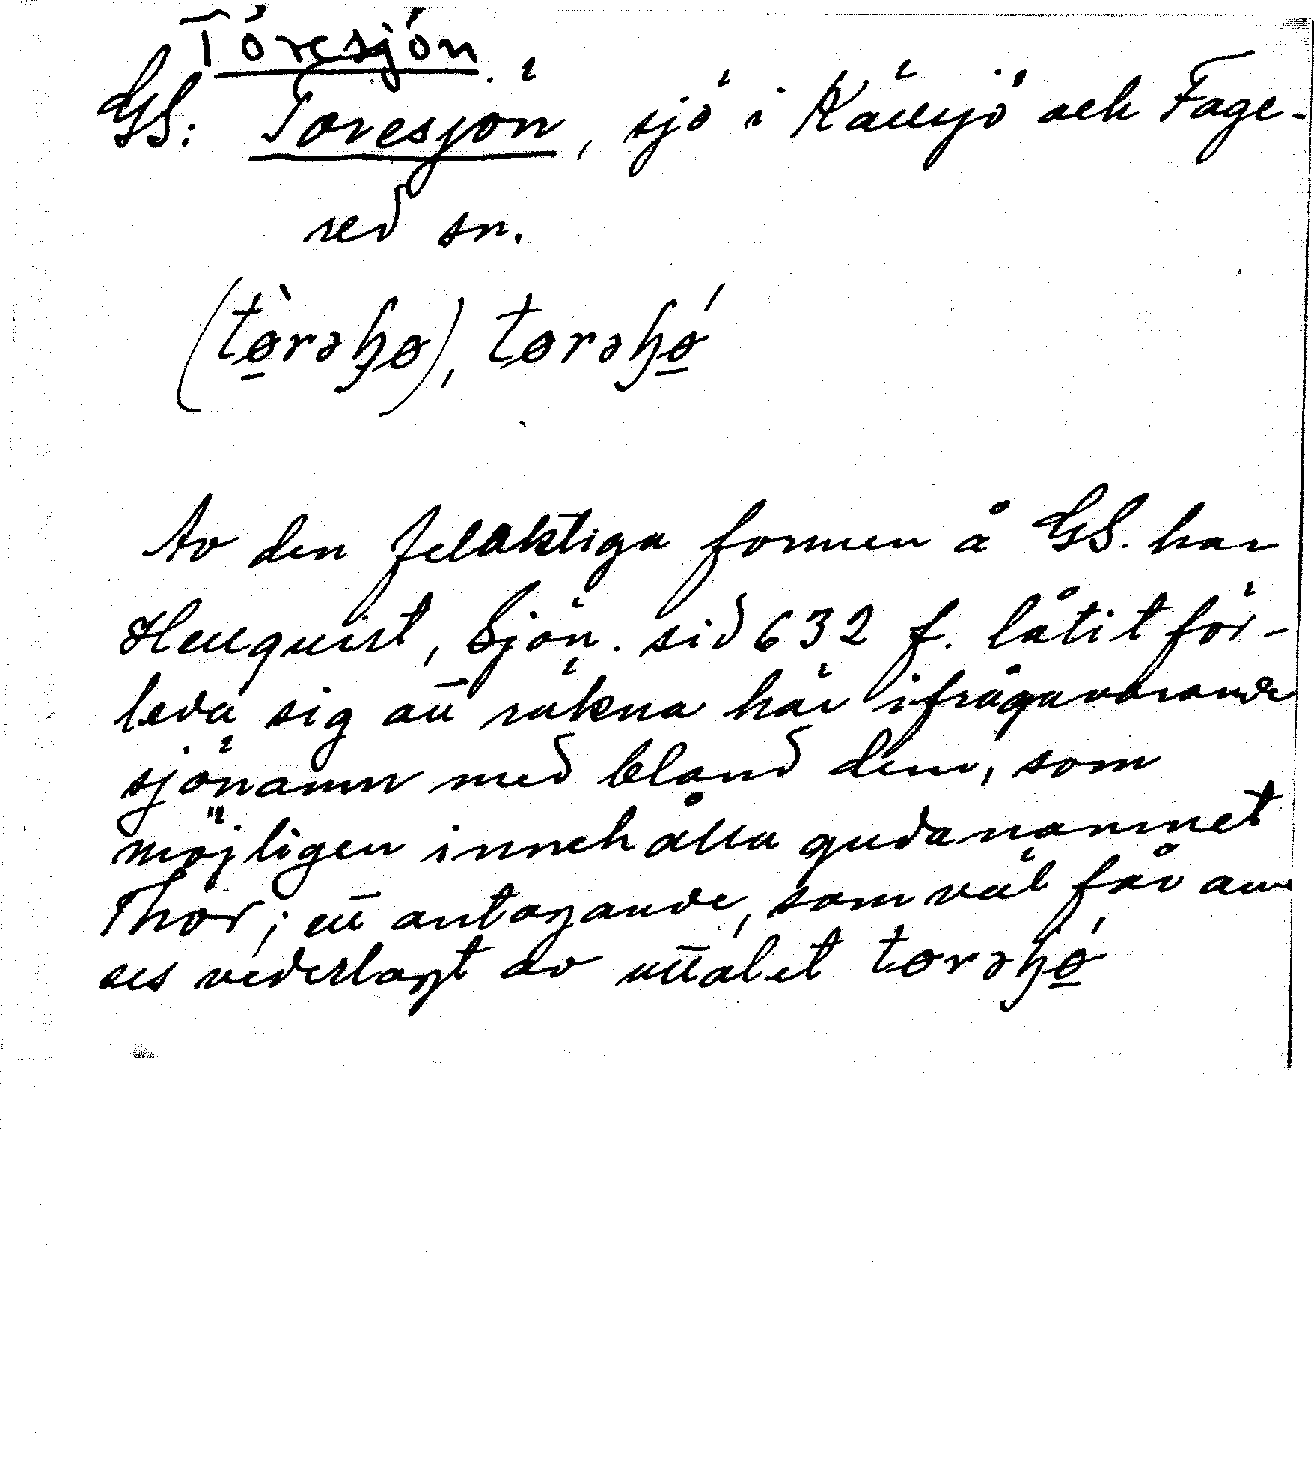 Töresjön
GS: Toresjön, sjö i Källsjö och Fage-
red sn.
(tø̀rəꜧø), tørəꜧǿ
Av den felaktiga formen å GS. har
Hellquist, Sjön. sid 632 f. låtit för-
leda sig att räkna här ifrågavarande
sjönamn med bland dem, som
möjligen innehålla gudanamnet
Thor; ett antagande, som väl får an-
ses vederlagt av uttalet tørəꜧǿ